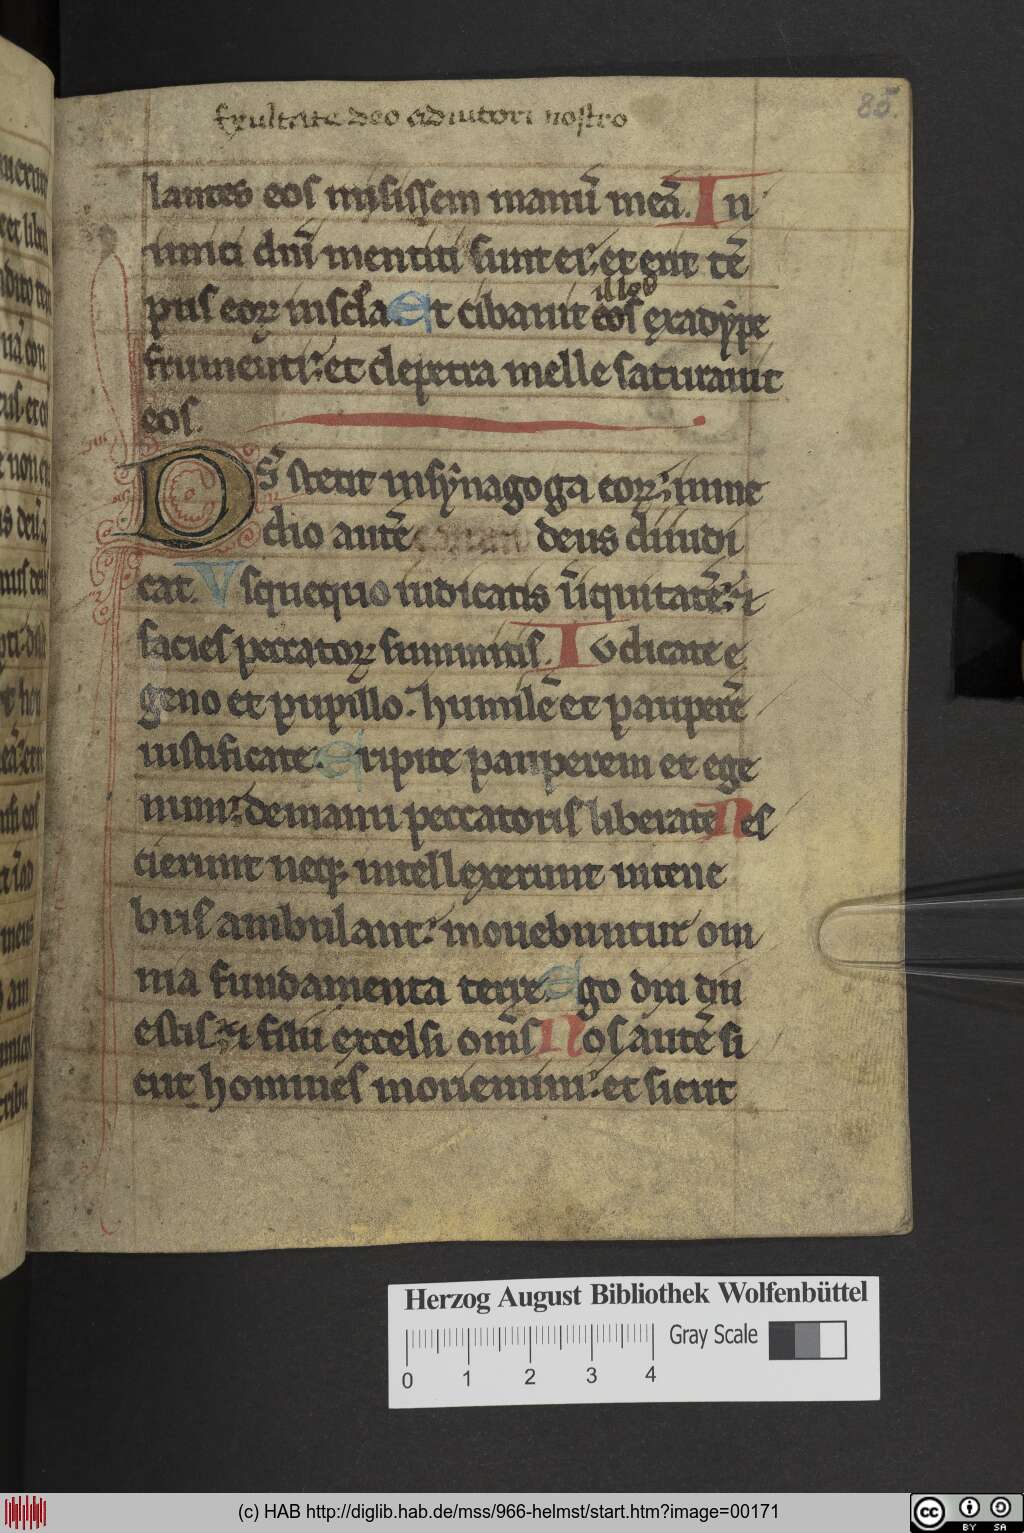 85.
Exultate deo adiutori nostro
lantes eos misissem manū meā. In
imici dñi mentiti sunt ei; et erit tē
pus eorꝝ in scła Et cibauit eos illos ex adype
frumenti; et de petra melle saturauit
eos.
Ds̄ stetit in synagoga eorꝝ; in me
dio autē deus diiudi
cat. Vsquequo iudicatis iniquitatē; ⁊
facies peccatorꝝ sumitis. Iudicate e
geno et pupillo; humilē et pauperē
iustificate. Eripite pauperem et ege
num; de manu peccatoris liberate Nes
cierunt neqꝫ intellexerunt in tene
bris ambulant; mouebuntur om
nia fundamenta terre. Ego dixi dii
estis; ⁊ filii excelsi om̄s Uos autē si
cut homines moriemini; et sicut
Herzog August Bibliothek Wolfenbüttel
Gray Scale
0 1 2 3 4
(c) HAB http://diglib.hab.de/mss/966-helmst/start.htm?image=00171
cc BY SA